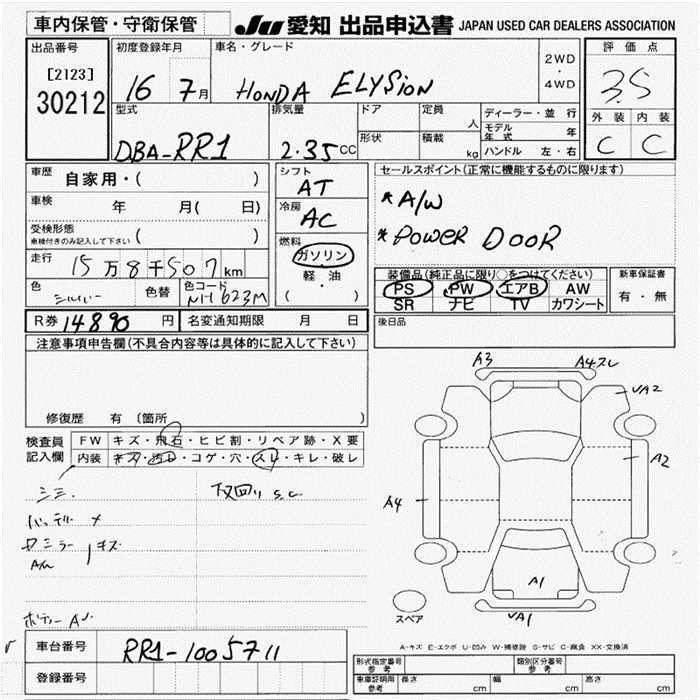 車内保管・守衛保管 JU 愛知 出品申込書 JAPAN USED CAR DEALERS ASSOCIATION
出品番号 初度登録年月 車名・グレード 2WD ・ 4WD 評価点
[2123]
30212 16 7月 HONDA ELYSION 3.5
型式 排気量 ドア 定員 人 ディーラー・並行 外装 内装
モデル年式 年
DBA-RR1 2.35cc 形状 積載 kg ハンドル 左・右 C C
車歴 自家用・( ) シフト セールスポイント(正常に機能するものに限ります)
AT
車検 年 月( 日) 冷房 *A/W
AC
受検形態 ( ) *POWER DOOR
車検付きのみ記入して下さい
燃料
走行 15万8千507km ガソリン 装備品(純正品に限り○をつけてください) 新車保証書
軽・油 PS PW エアB AW 有・無
色 シルバー 色替 色コード NH623M ( ) SR ナビ TV カワシート
R券 14890円 名変通知期限 月 日 後日品
注意事項申告欄(不具合内容等は具体的に記入して下さい)
A3 A4スレ
UA2
修復歴 有 (箇所 )
検査員記入欄 FW キズ・飛石・ヒビ割・リペア跡・X要
内装 キズ・汚レ・コゲ・穴・スレ・キレ・破レ
A2
A4
バッテリー ×
キズ
A/W
A1
ボディー
スペア
UA1
車台番号 RR1-1005711
A-キズ E-エクボ U-凹み W-補修跡 S-サビ C-腐食 XX-交換済
登録番号
形式指定番号 参考 類別区分番号 参考
車庫証明用 参考 長さ cm 幅 cm 高さ cm